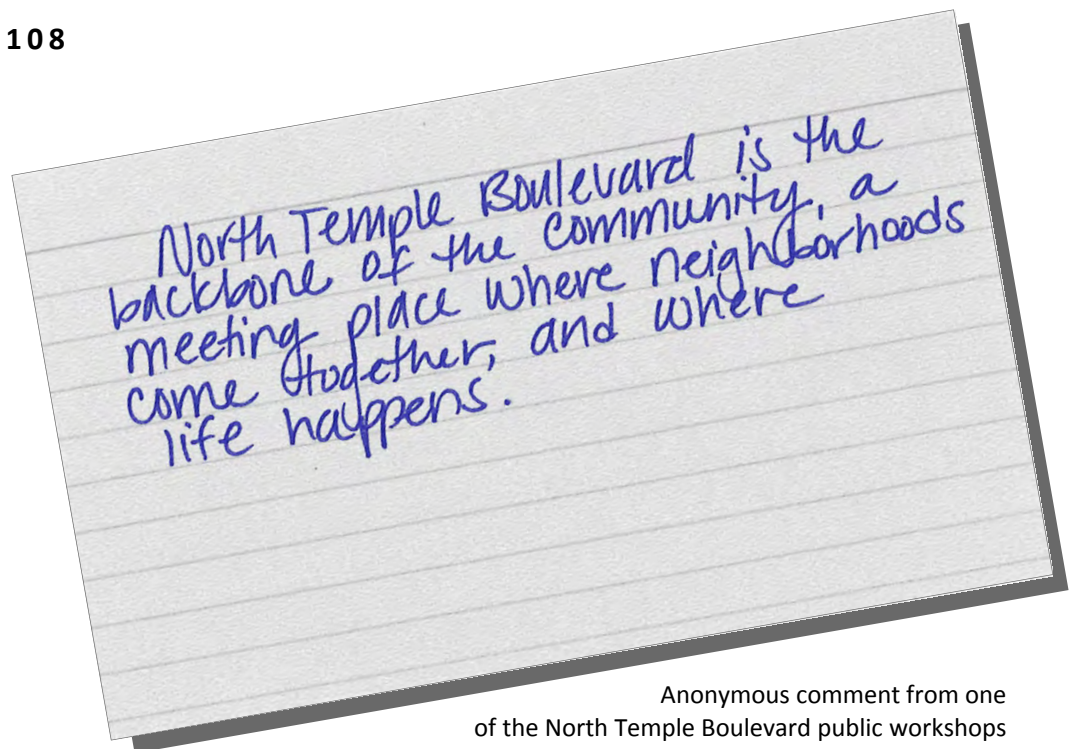 108
North Temple Boulevard is the
backbone of the community, a
meeting place where neighborhoods
come together, and where
life happens.
Anonymous comment from one
of the North Temple Boulevard public workshops